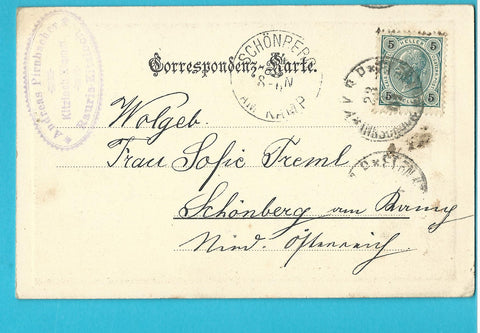 Andreas Pirnbacher
Kitzloch-Klamm
Rauris-Kitz
Correspondenz-Karte.
SCHÖNBERG
AM KAMP
5 HELLER 5
5 5
Wolgeb.
Frau Sofie Treml
Schönberg am Kamp
Nied. Österreich